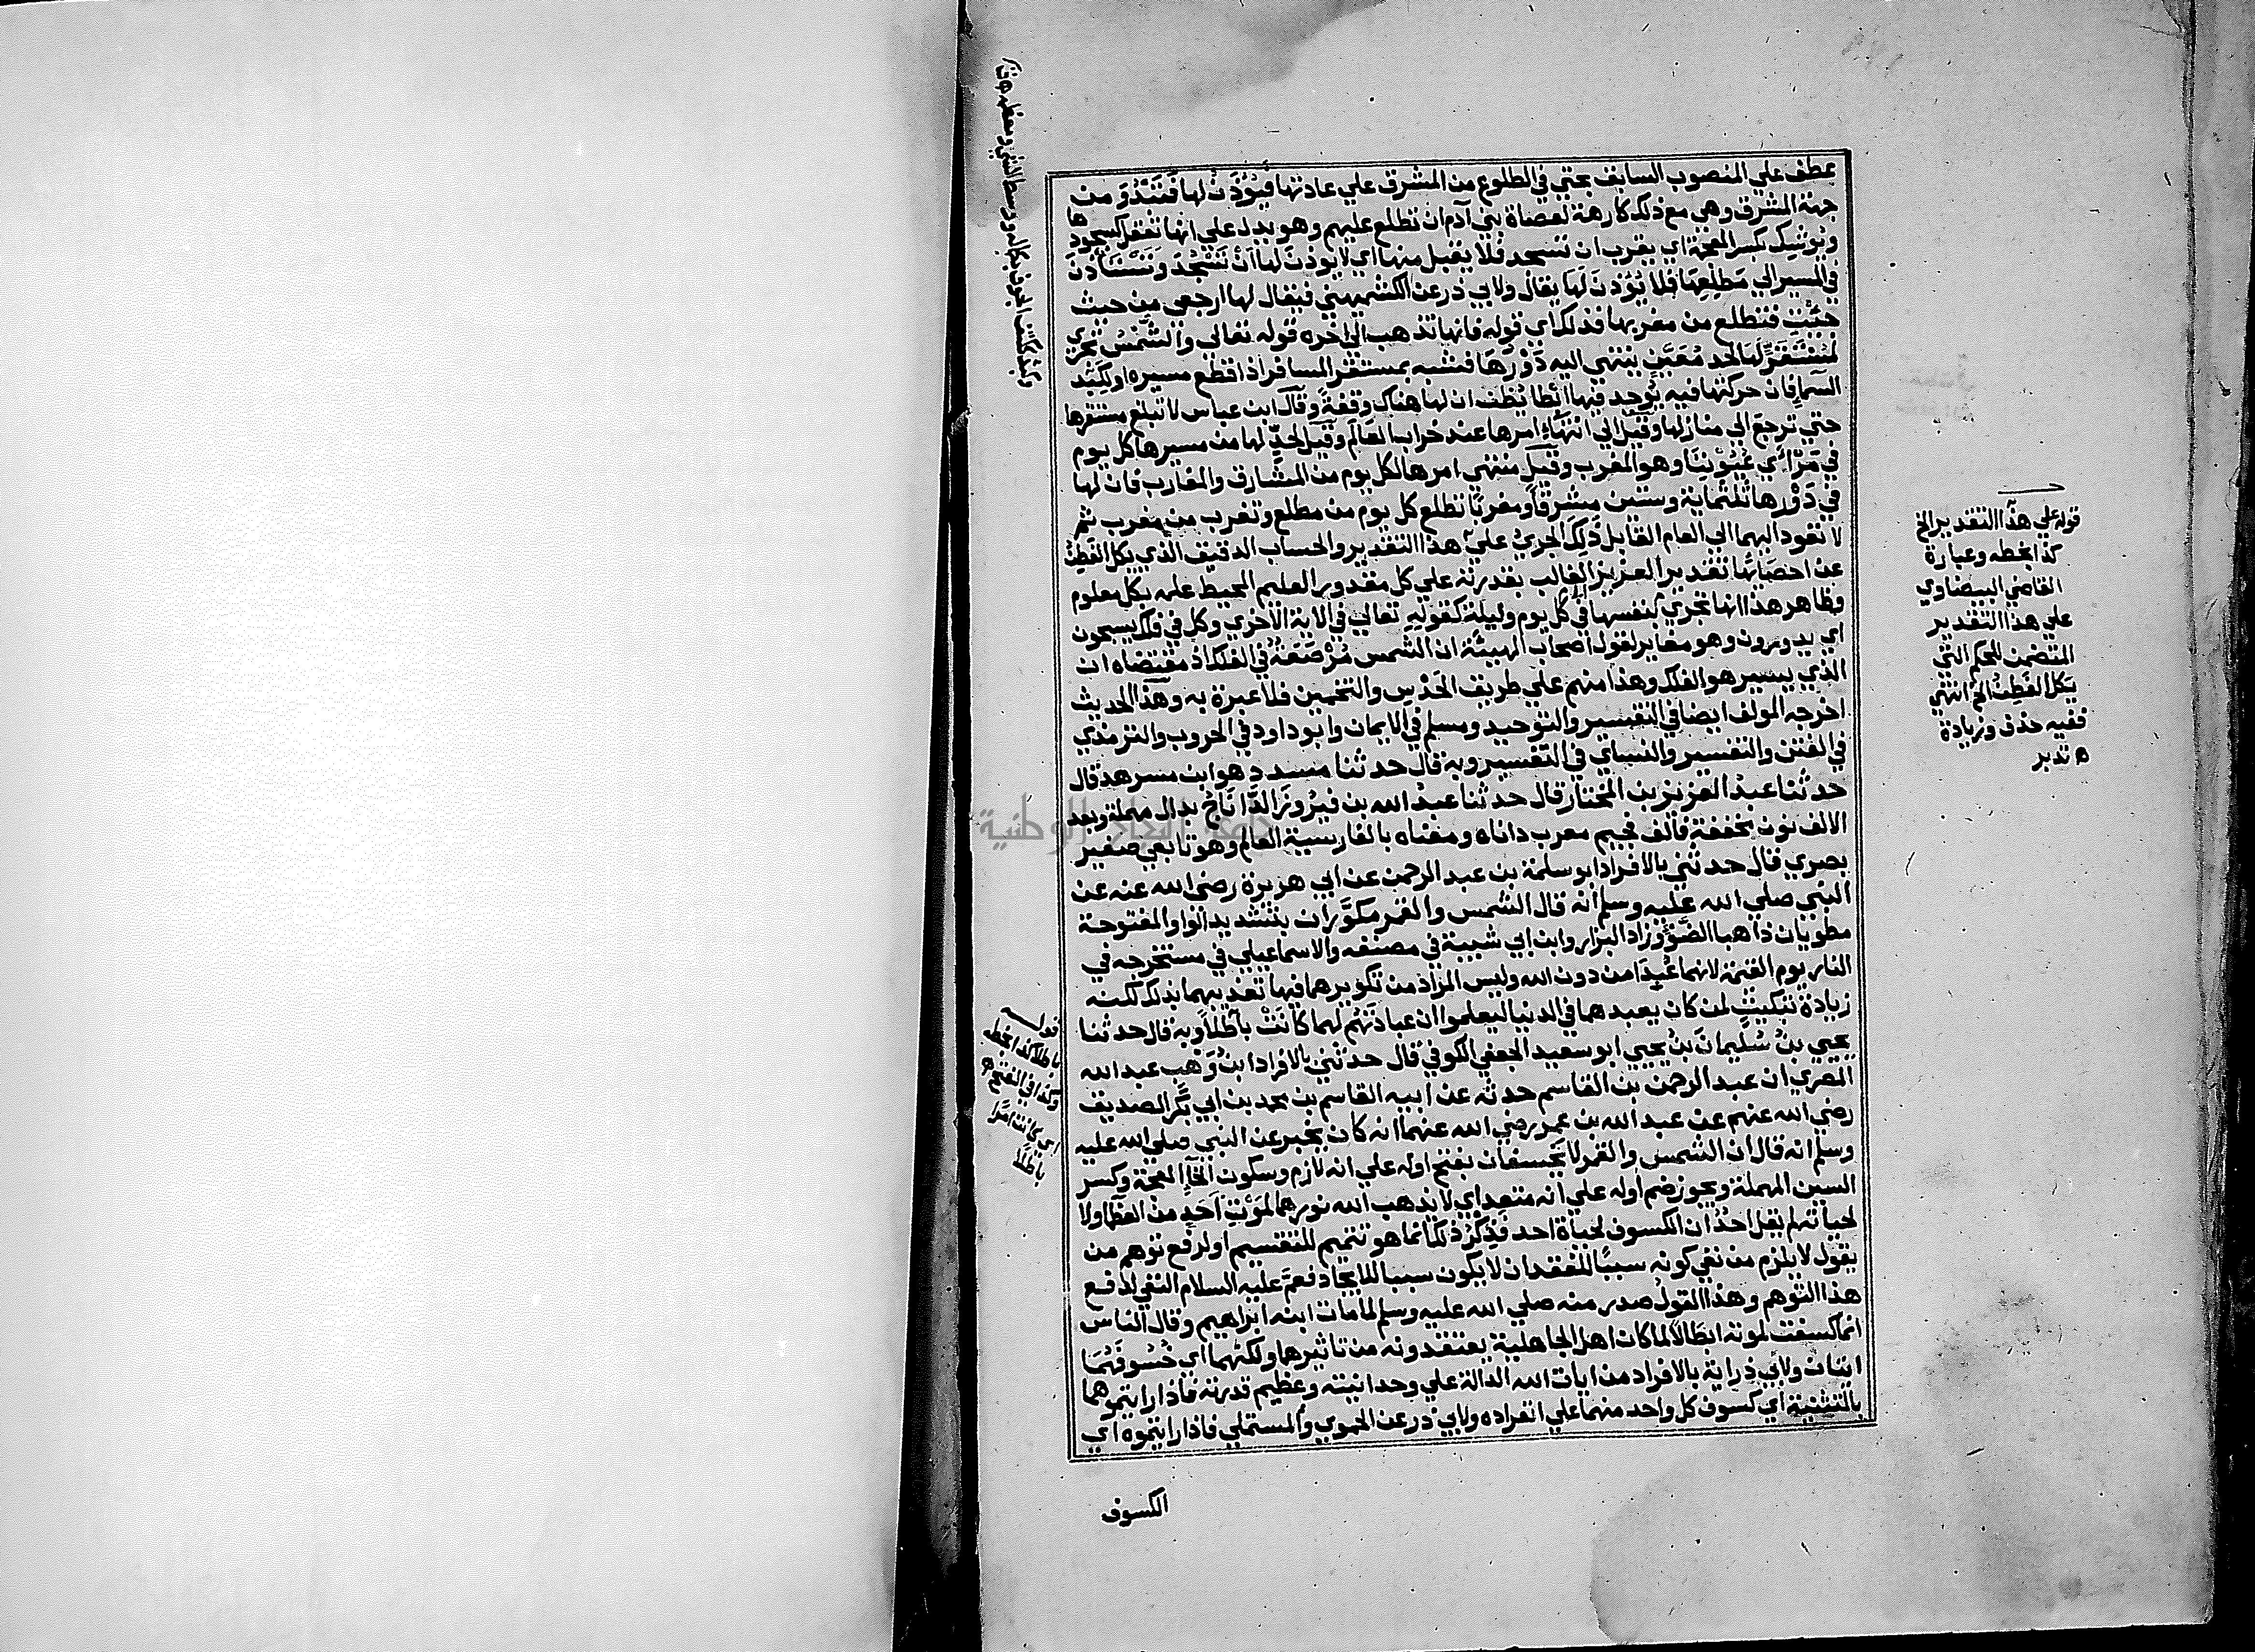 عطف علي المنصوب السابق بحتي في الطلوع من المشرق علي عادتها فيؤذن لها فتبدو من
جهة المشرق وهي مع ذلك كارهة لعصاة بني آدم ان تطلع عليهم وهو يدل علي انها تعقل كسجودها
ويوشك بكسر المعجمة اي يقرب ان تسجد فلا يقبل منها اي لا يوذن لها ان تسجد وتستأذن
في المسير الي مطلعها فلا يؤذن لها يقال ولابي ذر عن الكشميهني فيقال لها ارجعي من حيث
جئت فتطلع من مغربها فذلك اي قوله فانها تذهب الي اخره قوله تعالى والشمس تجري
لمستقر لها لحد معين ينتهي اليه دورها فشبه بمستقر المسافر اذا قطع مسيره او لكبد
السماء فان حركتها فيه يوجد فيها ابطا يظن ان لها هناك وقفة وقال ابن عباس لا تبلغ مستقرها
حتي ترجع الي منازلها وقيل الي انتهاء امرها عند خراب العالم وقيل لحد لها من مسيرها كل يوم
في مرأي عيوننا وهو المغرب وقيل منتهي امرها لكل يوم من المشارق والمغارب فان لها
في دورها ثلثماية وستين مشرقا ومغربا تطلع كل يوم من مطلع وتغرب من مغرب ثم
لا تعود اليهما الي العام القابل ذلك الجري علي هذا التقدير والحساب الدقيق الذي يكل الفطن
عن احصائها تقدير العزيز الغالب بقدرته علي كل مقدور العليم المحيط علمه بكل معلوم
وظاهر هذا انها تجري بنفسها في كل يوم وليلة كقوله تعالي في الاية الاخري وكل في فلك يسبحون
اي يدورون وهو مغاير لقول اصحاب الهيئة ان الشمس مرصعة في الفلك اذ مقتضاه ان
الذي يسير هو الفلك وهذا منهم علي طريق الحدس والتخمين فلا عبرة به وهذا الحديث
اخرجه المولف ايضا في التفسير والتوحيد ومسلم في الايمان وابو داود في الحروب والترمذي
في الفتن والتفسير والنسائي في التفسير وبه قال حدثنا مسدد هو ابن مسرهد قال
حدثنا عبد العزيز بن المختار قال حدثنا عبد الله بن فيروز الداناج بدال مهملة وبعد
الالف نون مخففة فالف فجيم معرب داناه ومعناه بالفارسية العالم وهو تابعي صغير
بصري قال حدثني بالافراد ابو سلمة بن عبد الرحمن عن ابي هريرة رضي الله عنه عن
النبي صلي الله عليه وسلم انه قال الشمس والقمر مكوران بتشديد الواو المفتوحة
مطويان ذاهبا الضوء وزاد البزار وابن ابي شيبة في مصنفه والاسماعيلي في مستخرجه في
النار يوم القيمة لانهما عبدا من دون الله وليس المراد من تكويرهما فيها تعذيبهما بذلك لكنه
زيادة تبكيت لمن كان يعبدهما في الدنيا ليعلموا ان عبادتهم لهما كانت باطلا وبه قال حدثنا
يحيي بن سليمان بن يحيي ابو سعيد الجعفي الكوفي قال حدثني بالافراد ابن وهب عبد الله
المصري ان عبد الرحمن بن القاسم حدثه عن ابيه القاسم بن محمد بن ابي بكر الصديق
رضي الله عنهم عن عبد الله بن عمر رضي الله عنهما انه كان يخبر عن النبي صلي الله عليه
وسلم انه قال ان الشمس والقمر لا يخسفان بفتح اوله علي انه لازم وسكون الخاء المعجمة وكسر
السين المهملة ويجوز ضم اوله علي انه متعد اي لا يذهب الله نورهما لموت احد من العظما ولا
لحياته لم يقل احد ان الكسوف لحياة احد فذكر ذلك انما هو تتميم للتقسيم او لرفع توهم من
يقول لا يلزم من نفي كونه سببا للفقدان لا يكون سببا للايجاد فعم عليه السلام النفي لدفع
هذا التوهم وهذا القول صدر منه صلي الله عليه وسلم لما مات ابنه ابراهيم وقال الناس
انما كسفت لموته ابطالا لما كان اهل الجاهلية يعتقدونه من تاثيرها ولكنهما اي خسوفهما
ايتان ولابي ذر اية بالافراد من ايات الله الدالة علي وحدانيته وعظيم قدرته فاذا رايتموهما
بالتثنية اي كسوف كل واحد منهما علي انفراده ولابي ذر عن الحموي والمستملي فاذا رايتموه اي
الكسوف
قوله علي هذا التقدير الخ
كذا بخطه وعبارة
القاضي البيضاوي
علي هذا التقدير
المتضمن للحكم التي
يكل الفطن الخ انتهي
ففيه حذف وزيادة
ه تدبر
قوله
باطلا كذا بخطه
وكذا في الفتح ه
اي كانت امرا
باطلا